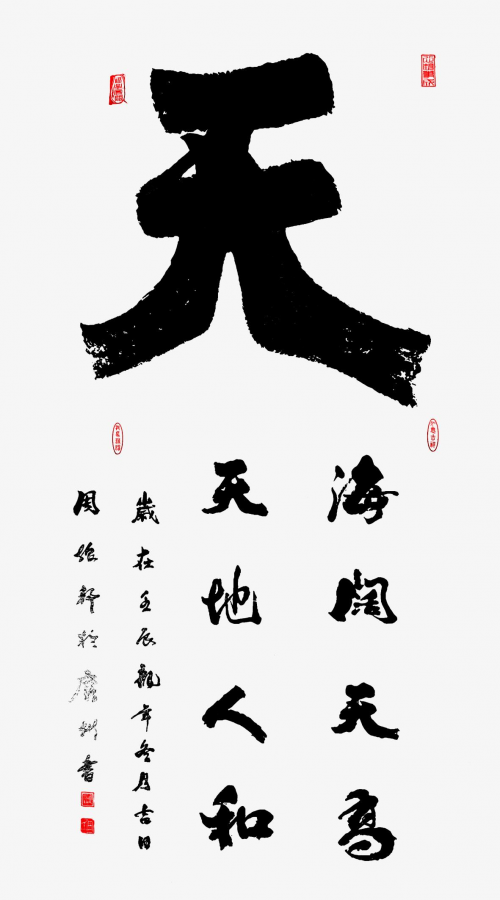 天
海闊天高
天地人和
歲在壬辰龍年冬月吉日
周 於廣州書